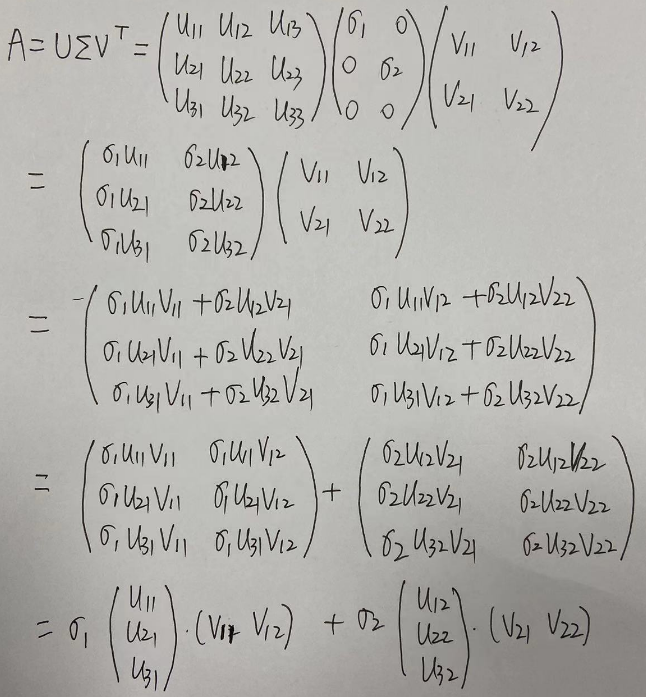 A = UΣV^T = (u11 u12 u13; u21 u22 u23; u31 u32 u33) (σ1 0; 0 σ2; 0 0) (v11 v12; v21 v22)
= (σ1u11 σ2u12; σ1u21 σ2u22; σ1u31 σ2u32) (v11 v12; v21 v22)
= (σ1u11v11 + σ2u12v21 σ1u11v12 + σ2u12v22; σ1u21v11 + σ2u22v21 σ1u21v12 + σ2u22v22; σ1u31v11 + σ2u32v21 σ1u31v12 + σ2u32v22)
= (σ1u11v11 σ1u11v12; σ1u21v11 σ1u21v12; σ1u31v11 σ1u31v12) + (σ2u12v21 σ2u12v22; σ2u22v21 σ2u22v22; σ2u32v21 σ2u32v22)
= σ1 (u11; u21; u31) · (v11 v12) + σ2 (u12; u22; u32) · (v21 v22)